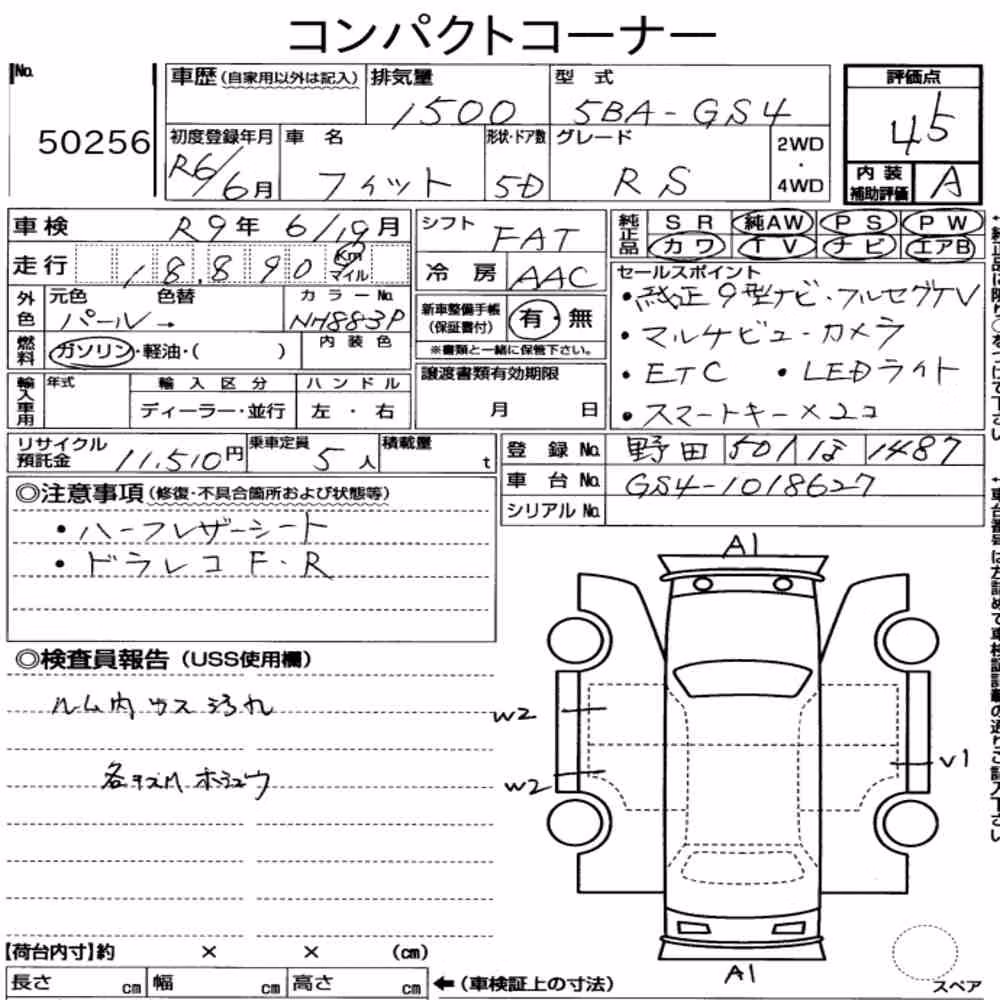 コンパクトコーナー
No. 50256
車歴 (自家用以外は記入) 排気量 1500 型式 5BA-GS4 評価点 4.5
初度登録年月 R6/6月 車名 フィット 形状・ドア数 5D グレード RS 2WD・4WD 内装補助評価 A
車検 R9年 6/19月 シフト FAT 純正品 SR 純AW PS PW
カワ TV ナビ エアB
走行 18,890 Km マイル 冷房 AAC セールスポイント
外色 元色 パール→ 色替 カラーNo. NH883P 新車整備手帳(保証書付) 有・無 ・純正9型ナビ・フルセグTV
内装色 ※書類と一緒に保管下さい。 ・マルチビュー・カメラ
燃料 ガソリン・軽油・( ) ・ETC ・LEDライト
輸入車用 年式 輸入区分 ハンドル 譲渡書類有効期限 ・スマートキー×2コ
ディーラー・並行 左・右 月 日
リサイクル預託金 11,510円 乗車定員 5人 積載量 t 登録No. 野田 501 ほ 1487
車台No. GS4-1018627
シリアルNo.
◎注意事項 (修復・不具合箇所および状態等)
・ハーフレザーシート
・ドラレコ F・R
A1
◎検査員報告 (USS使用欄)
ルーム内 ウス汚れ
W2
W2
V1
【荷台内寸】約 × × (cm)
A1
スペア
長さ cm 幅 cm 高さ cm ←(車検証上の寸法)